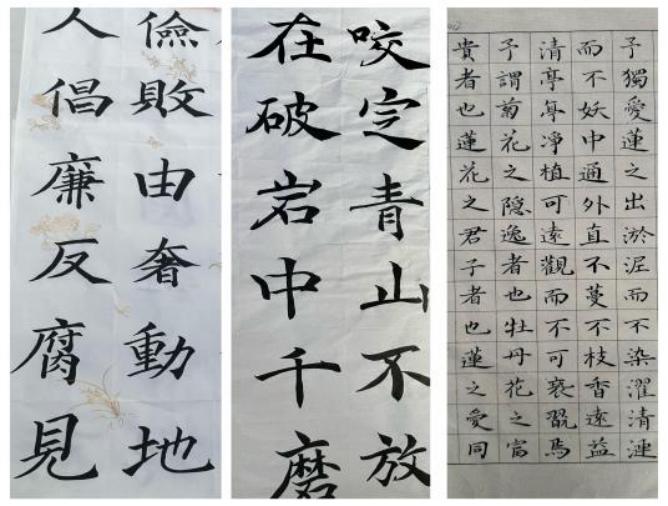 儉敗由奢動地
人倡廉反腐見
咬定青山不放
在破岩中千磨
予獨愛蓮之出淤泥而不染濯清漣
而不妖中通外直不蔓不枝香遠益
清亭亭凈植可遠觀而不可褻翫焉
予謂菊花之隐逸者也牡丹花之富
貴者也蓮花之君子者也蓮之愛同